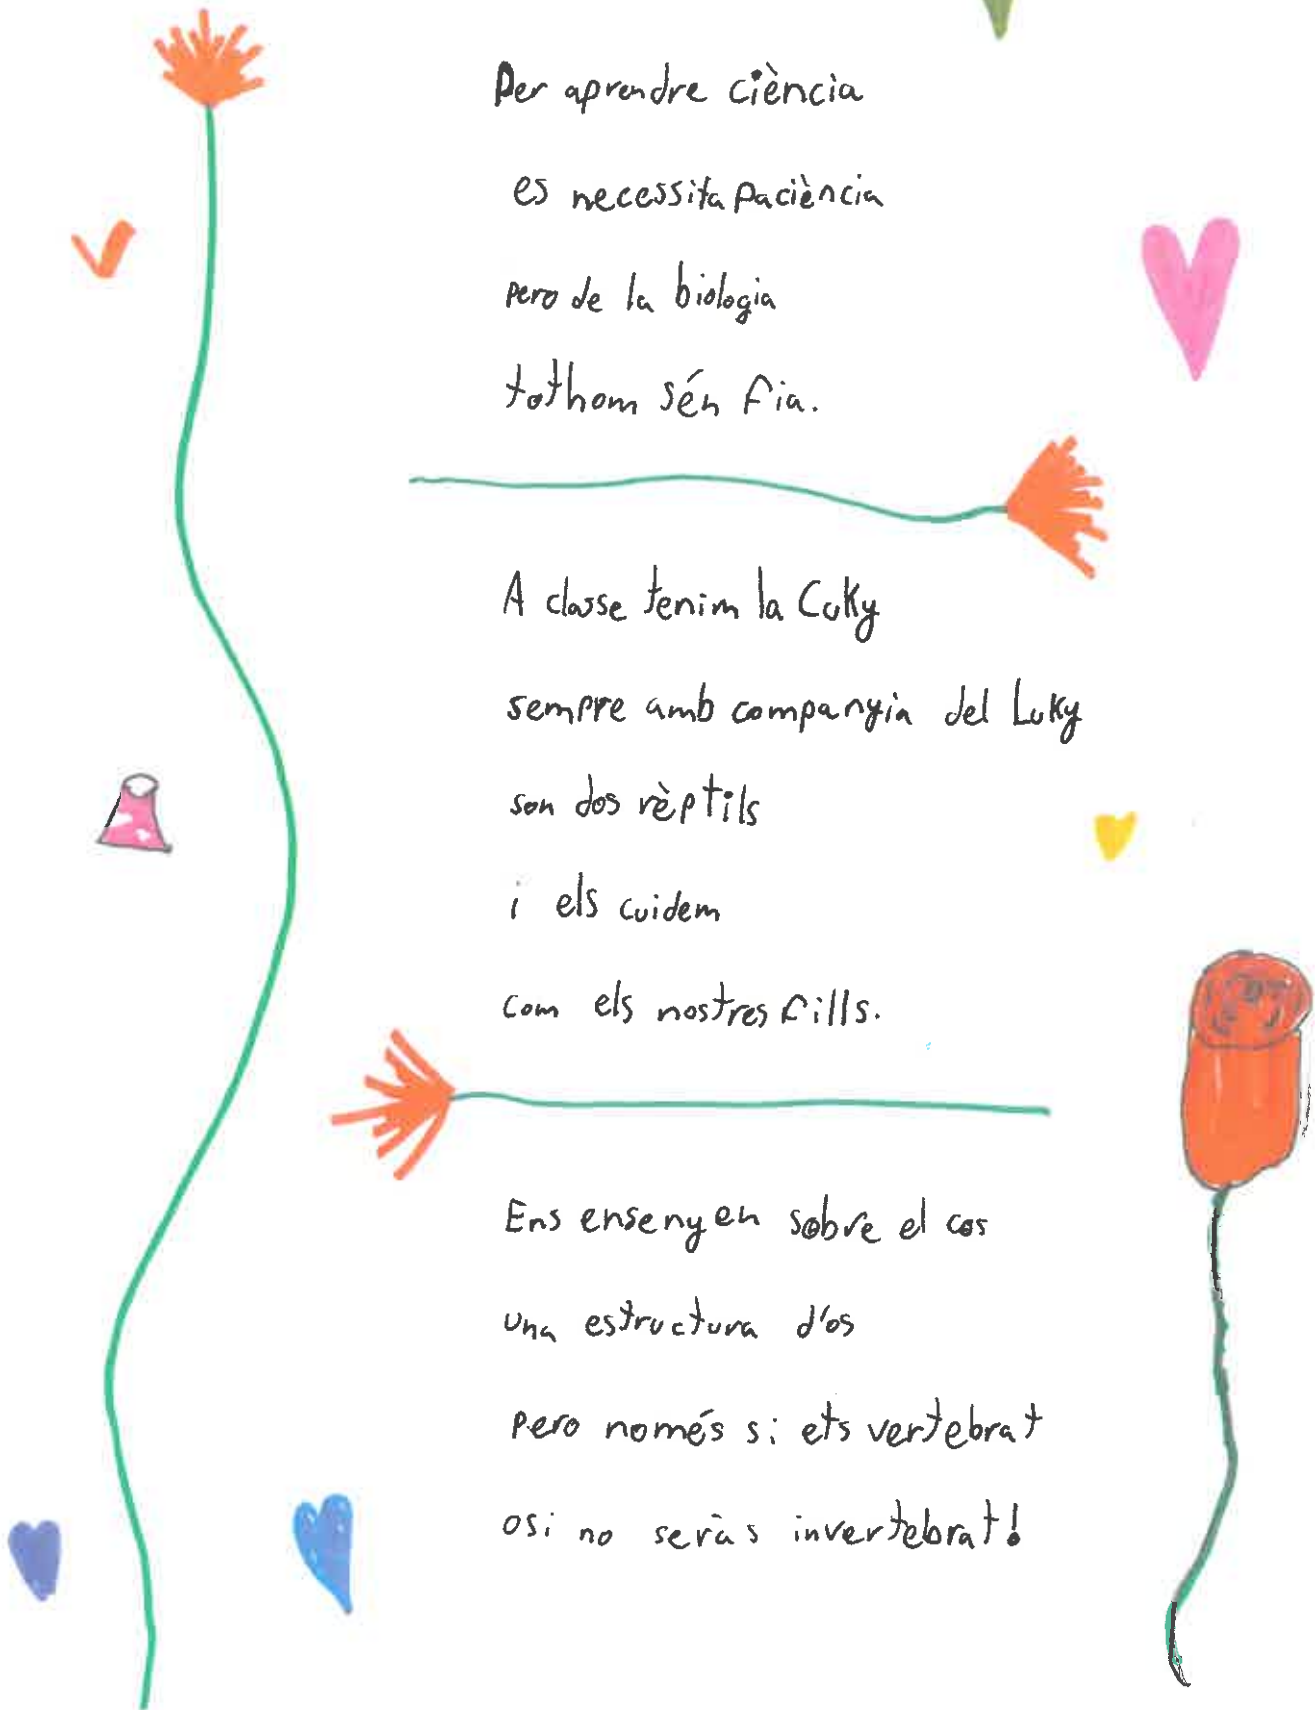 Per aprendre ciència
es necessita paciència
pero de la biologia
tothom sén fia.
A classe tenim la Cuky
sempre amb companyia del Luky
son dos rèptils
i els cuidem
com els nostres fills.
Ens ensenyen sobre el cos
una estructura d'os
pero només si ets vertebrat
osi no seràs invertebrat!